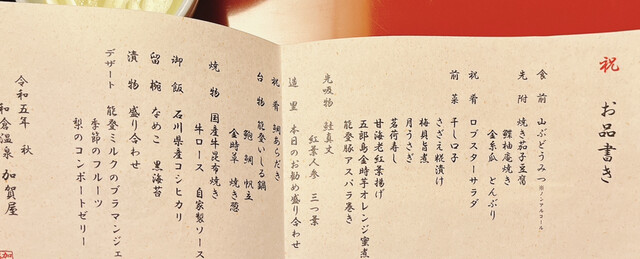 祝 お品書き
食前 山ぶどうみつ ※ノンアルコール
先附 焼き茄子豆腐
鰹柚庵焼き
金糸瓜 とんぶり
祝肴 ロブスターサラダ
前菜 干し口子
さざえ糀漬け
梅貝旨煮
月うさぎ
茗荷寿し
甘海老紅葉揚げ
五郎島金時芋オレンジ蜜煮
能登豚アスパラ巻き
先吸物 鮭真丈
紅葉人参 三つ葉
造里 本日のお勧め盛り合わせ
祝肴 鯛あらだき
台物 能登いしる鍋
鮑 鯛 帆立
金時草 焼き葱
焼物 国産牛昆布焼き
牛ロース 自家製ソース
御飯 石川県産コシヒカリ
留椀 なめこ 黒海苔
漬物 盛り合わせ
デザート 能登ミルクのブラマンジェ
季節のフルーツ
梨のコンポートゼリー
令和五年 秋
和倉温泉 加賀屋